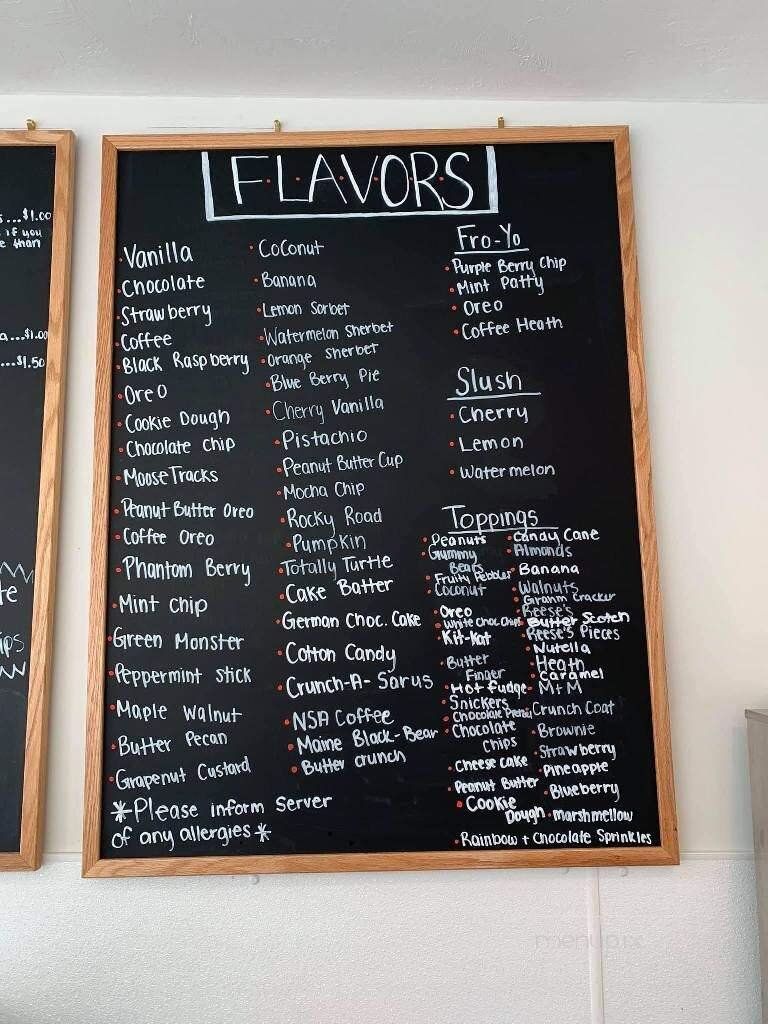 s...$1.00
if you
e than
a...$1.00
...$1.50
te
ips
FLAVORS
Vanilla
Chocolate
Strawberry
Coffee
Black Raspberry
Oreo
Cookie Dough
Chocolate Chip
Moose Tracks
Peanut Butter Oreo
Coffee Oreo
Phantom Berry
Mint Chip
Green Monster
Peppermint Stick
Maple Walnut
Butter Pecan
Grapenut Custard
*Please inform Server
of any allergies*
Coconut
Banana
Lemon Sorbet
Watermelon Sherbet
Orange Sherbet
Blue Berry Pie
Cherry Vanilla
Pistachio
Peanut Butter Cup
Mocha Chip
Rocky Road
Pumpkin
Totally Turtle
Cake Batter
German Choc. Cake
Cotton Candy
Crunch-A-Sarus
NSA Coffee
Maine Black-Bear
Butter crunch
Fro-Yo
Purple Berry Chip
Mint Patty
Oreo
Coffee Heath
Slush
Cherry
Lemon
Watermelon
Toppings
Peanuts
Gummy
Bears
Fruity Pebbles
Coconut
Oreo
White Choc Chips
Kit-Kat
Butter
Finger
Hot fudge
Snickers
Chocolate Pretzel
Chocolate
Chips
Cheese cake
Peanut Butter
Cookie
Dough
Candy Cane
Almonds
Banana
Walnuts
Graham Cracker
Reese's
Butter Scotch
Reese's Pieces
Nutella
Heath
Caramel
M+M
Crunch Coat
Brownie
Strawberry
Pineapple
Blueberry
marshmellow
Rainbow + Chocolate Sprinkles
menupix